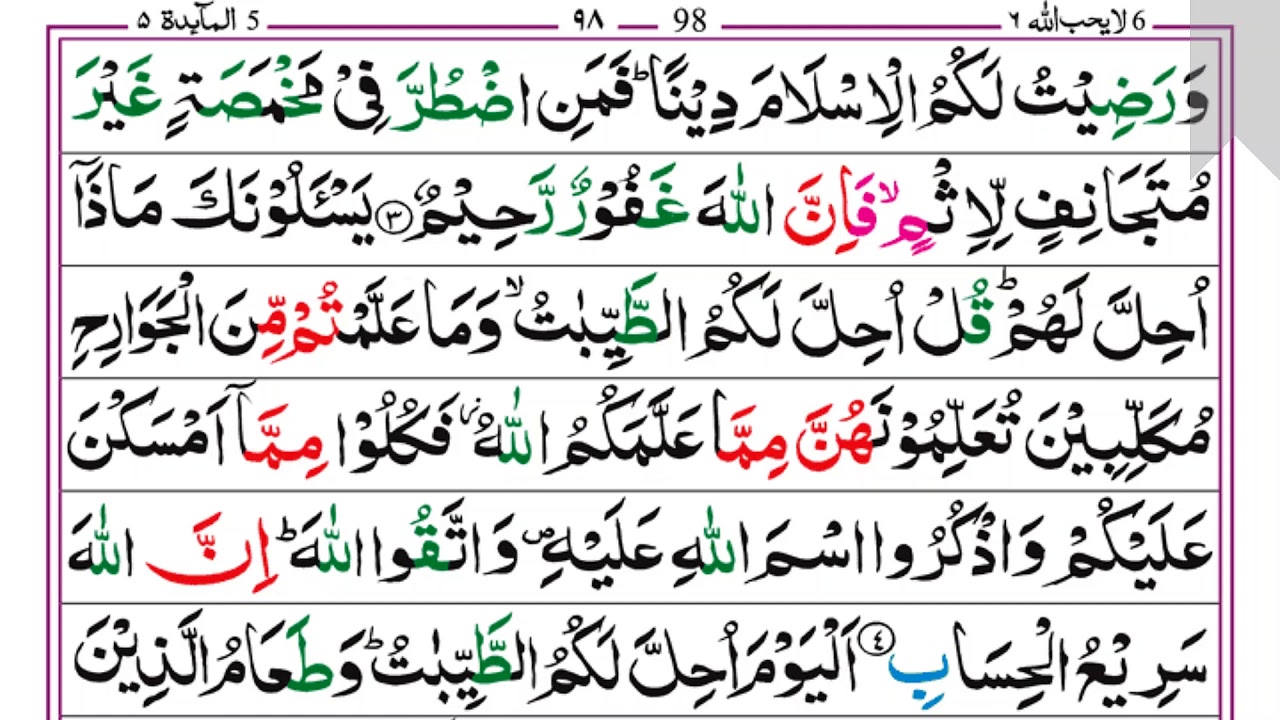 6 لا یحب الله ٦ — 98 — ٩٨ — 5 المآىِٕدة ٥
وَرَضِیْتُ لَكُمُ الْاِسْلَامَ دِیْنًا ؕ فَمَنِ اضْطُرَّ فِیْ مَخْمَصَةٍ غَیْرَ
مُتَجَانِفٍ لِّاِثْمٍ ۙ فَاِنَّ اللّٰهَ غَفُوْرٌ رَّحِیْمٌ ﴿۳﴾ یَسْـَٔلُوْنَكَ مَاذَاۤ
اُحِلَّ لَهُمْ ؕ قُلْ اُحِلَّ لَكُمُ الطَّیِّبٰتُ ۙ وَمَا عَلَّمْتُمْ مِّنَ الْجَوَارِحِ
مُكَلِّبِیْنَ تُعَلِّمُوْنَهُنَّ مِمَّا عَلَّمَكُمُ اللّٰهُ ؗ فَكُلُوْا مِمَّاۤ اَمْسَكْنَ
عَلَیْكُمْ وَاذْكُرُوا اسْمَ اللّٰهِ عَلَیْهِ ۪ وَاتَّقُوا اللّٰهَ ؕ اِنَّ اللّٰهَ
سَرِیْعُ الْحِسَابِ ﴿۴﴾ اَلْیَوْمَ اُحِلَّ لَكُمُ الطَّیِّبٰتُ ؕ وَطَعَامُ الَّذِیْنَ